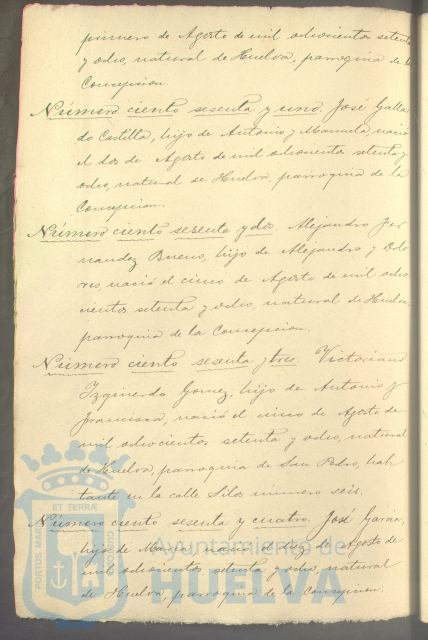 primero de Agosto de mil ochocientos setenta
y ocho, natural de Huelva, parroquia de la
Concepcion.
Número ciento sesenta y uno. José Galla
do Castilla, hijo de Antonio y Manuela, nació
el dos de Agosto de mil ochocientos setenta y
ocho, natural de Huelva, parroquia de la
Concepcion.
Número ciento sesenta y dos. Alejandro Fer
nandez Bueno, hijo de Alejandro y Dolo
res, nació el cinco de Agosto de mil ocho
cientos setenta y ocho, natural de Huelva,
parroquia de la Concepcion.
Número ciento sesenta y tres. Victoriano
Izquierdo Gomez, hijo de Antonio y
Francisca, nació el cinco de Agosto de
mil ochocientos setenta y ocho, natural
de Huelva, parroquia de San Pedro, habi
tante en la calle Silos número seis.
Número ciento sesenta y cuatro. José Garcia,
hijo de Maria, nació el diez de Agosto de
mil ochocientos setenta y ocho, natural
de Huelva, parroquia de la Concepcion.
PORTUS MARIS ET TERRÆ CUSTODIA
Ayuntamiento de
HUELVA